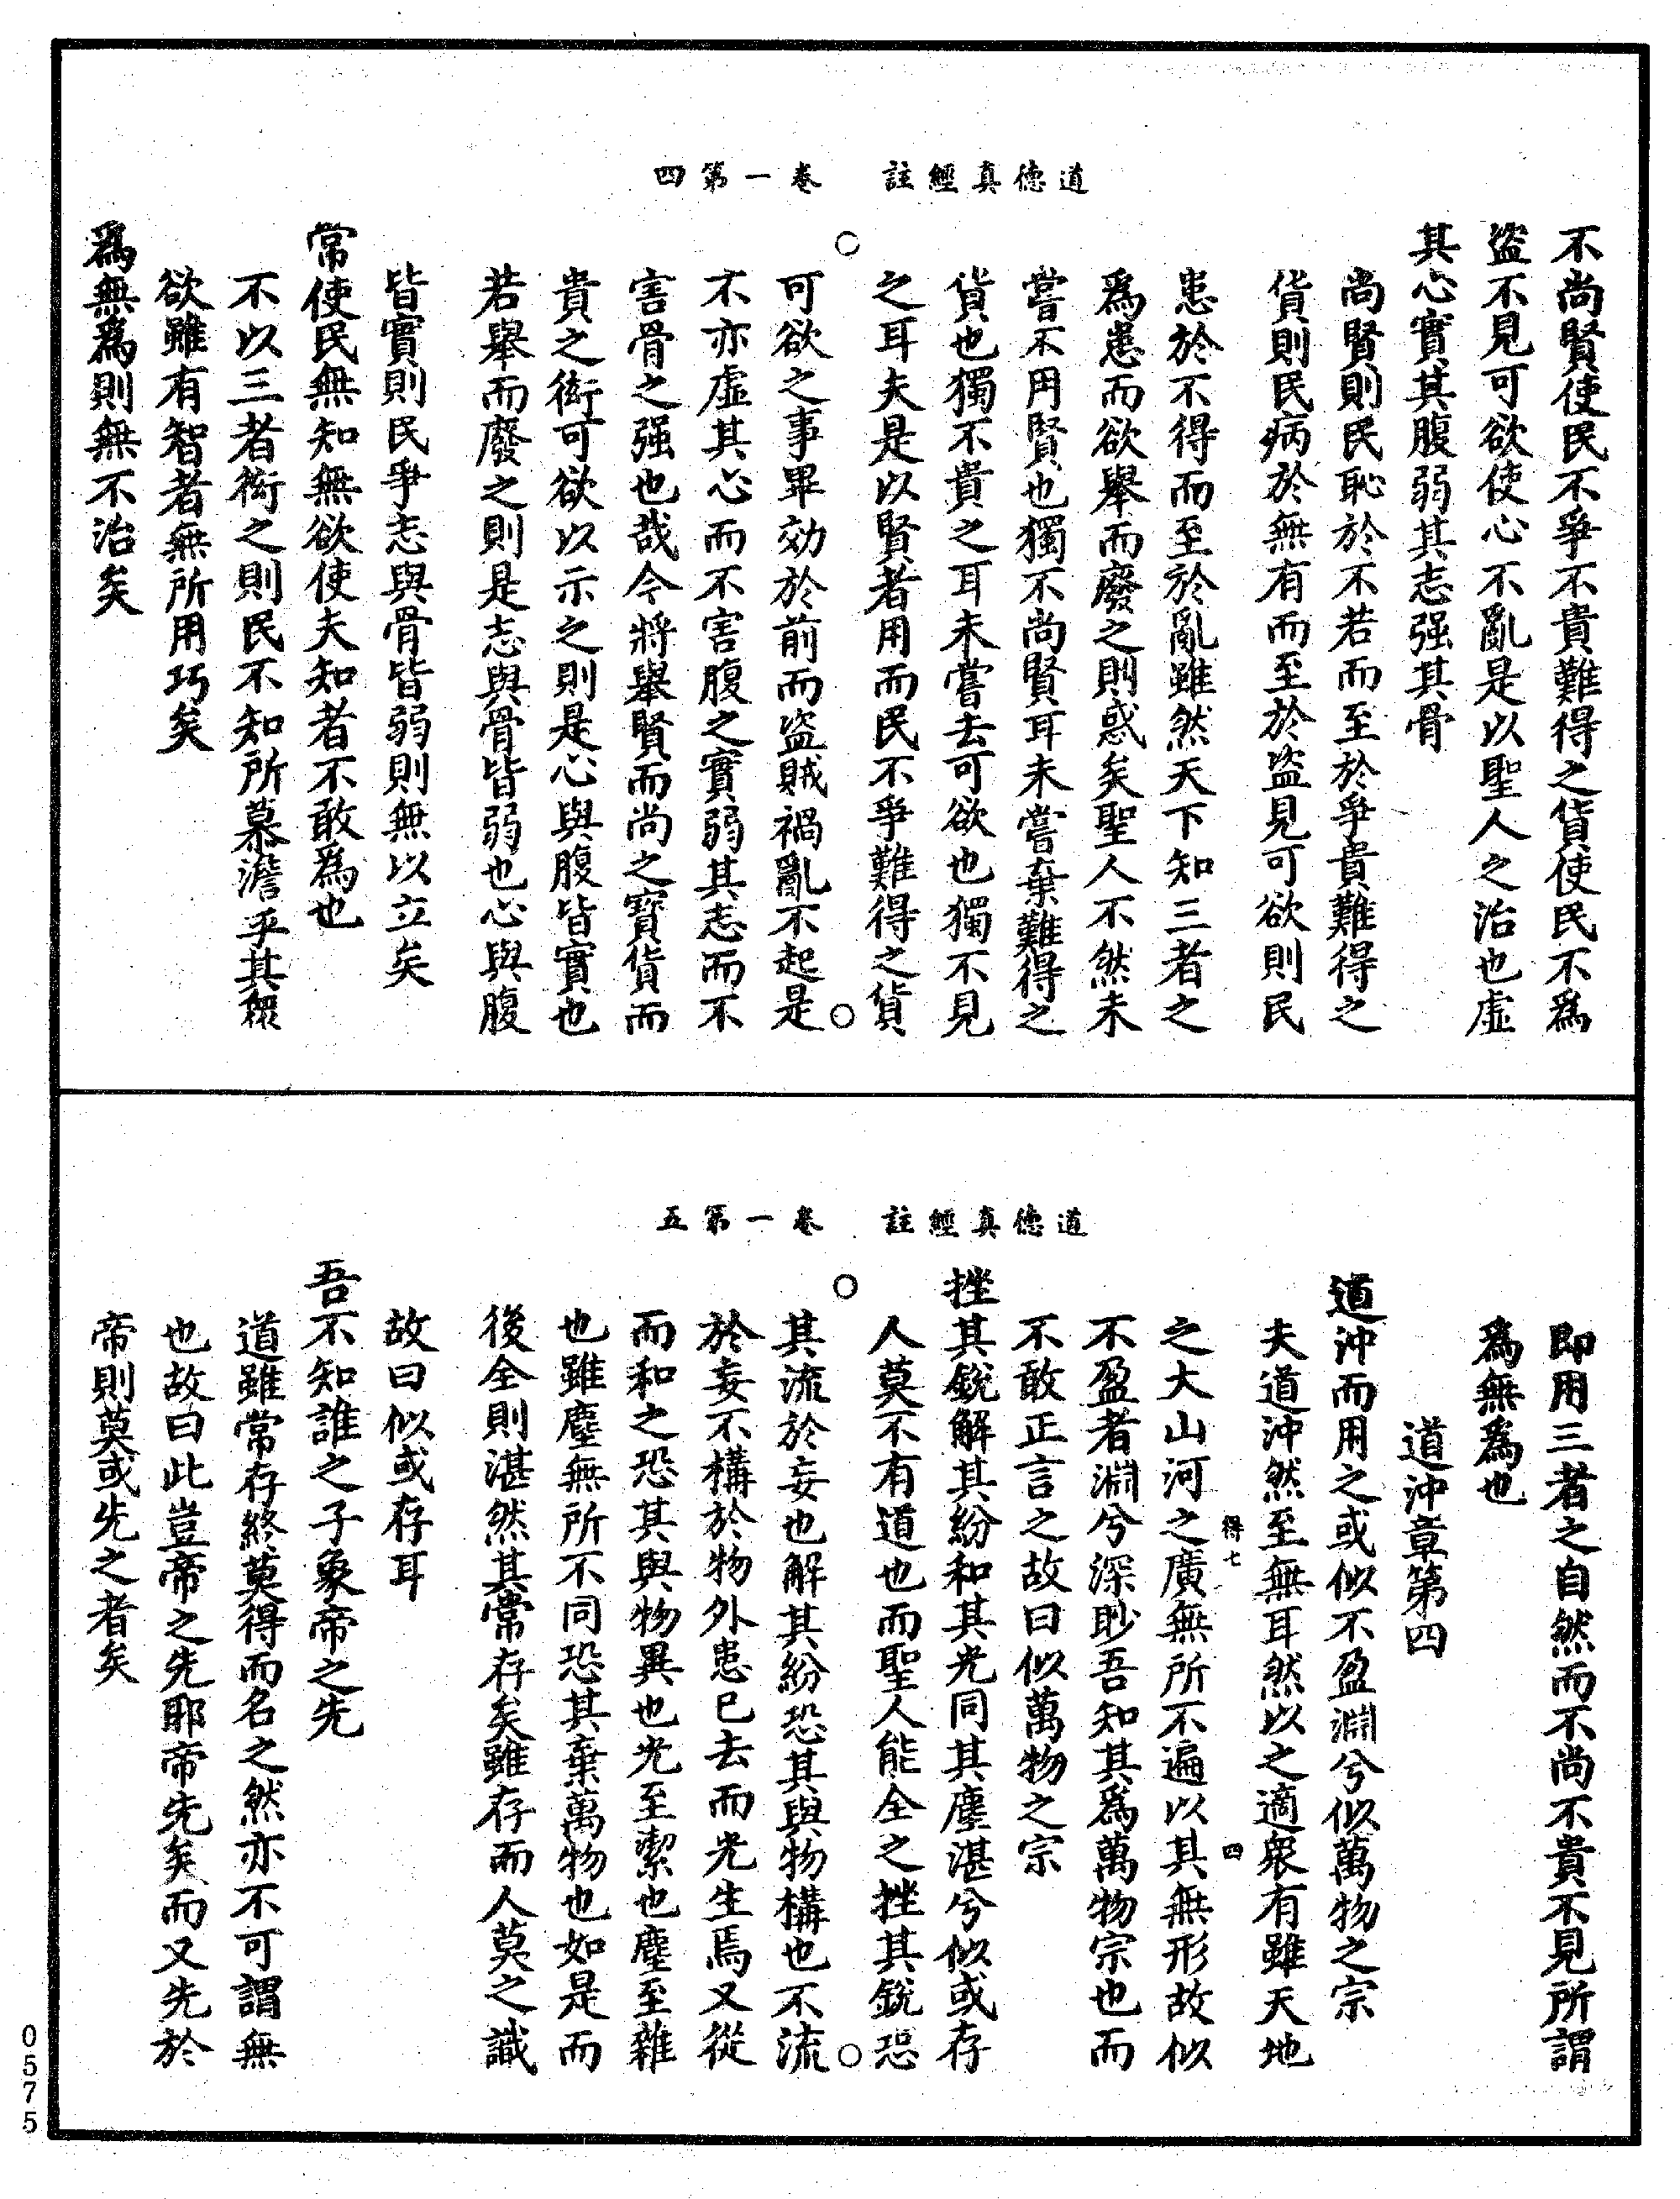 道德真經註　卷一第四
不尚賢使民不爭不貴難得之貨使民不爲
盜不見可欲使心不亂是以聖人之治也虛
其心實其腹弱其志强其骨
尚賢則民恥於不若而至於爭貴難得之
貨則民病於無有而至於盜見可欲則民
患於不得而至於亂雖然天下知三者之
爲患而欲舉而廢之則惑矣聖人不然未
嘗不用賢也獨不尚賢耳未嘗棄難得之
貨也獨不貴之耳未嘗去可欲也獨不見
之耳夫是以賢者用而民不爭難得之貨
○
可欲之事畢効於前而盜賊禍亂不起是
○
不亦虛其心而不害腹之實弱其志而不
害骨之强也哉今將舉賢而尚之寳貨而
貴之衒可欲以示之則是心與腹皆實也
若舉而廢之則是志與骨皆弱也心與腹
皆實則民爭志與骨皆弱則無以立矣
常使民無知無欲使夫知者不敢爲也
不以三者衒之則民不知所慕澹乎其無
欲雖有智者無所用巧矣
爲無爲則無不治矣
道德真經註　卷一第五
即用三者之自然而不尚不貴不見所謂
爲無爲也
道沖章第四
道沖而用之或似不盈淵兮似萬物之宗
夫道沖然至無耳然以之適衆有雖天地
得七　四
之大山河之廣無所不遍以其無形故似
不盈者淵兮深眇吾知其爲萬物宗也而
不敢正言之故曰似萬物之宗
挫其銳解其紛和其光同其塵湛兮似或存
人莫不有道也而聖人能全之挫其銳恐
○
其流於妄也解其紛恐其與物構也不流
○
於妄不構於物外患已去而光生焉又從
而和之恐其與物異也光至潔也塵至雜
也雖塵無所不同恐其棄萬物也如是而
後全則湛然其常存矣雖存而人莫之識
故曰似或存耳
吾不知誰之子象帝之先
道雖常存終莫得而名之然亦不可謂無
也故曰此豈帝之先耶帝先矣而又先於
帝則莫或先之者矣
0575